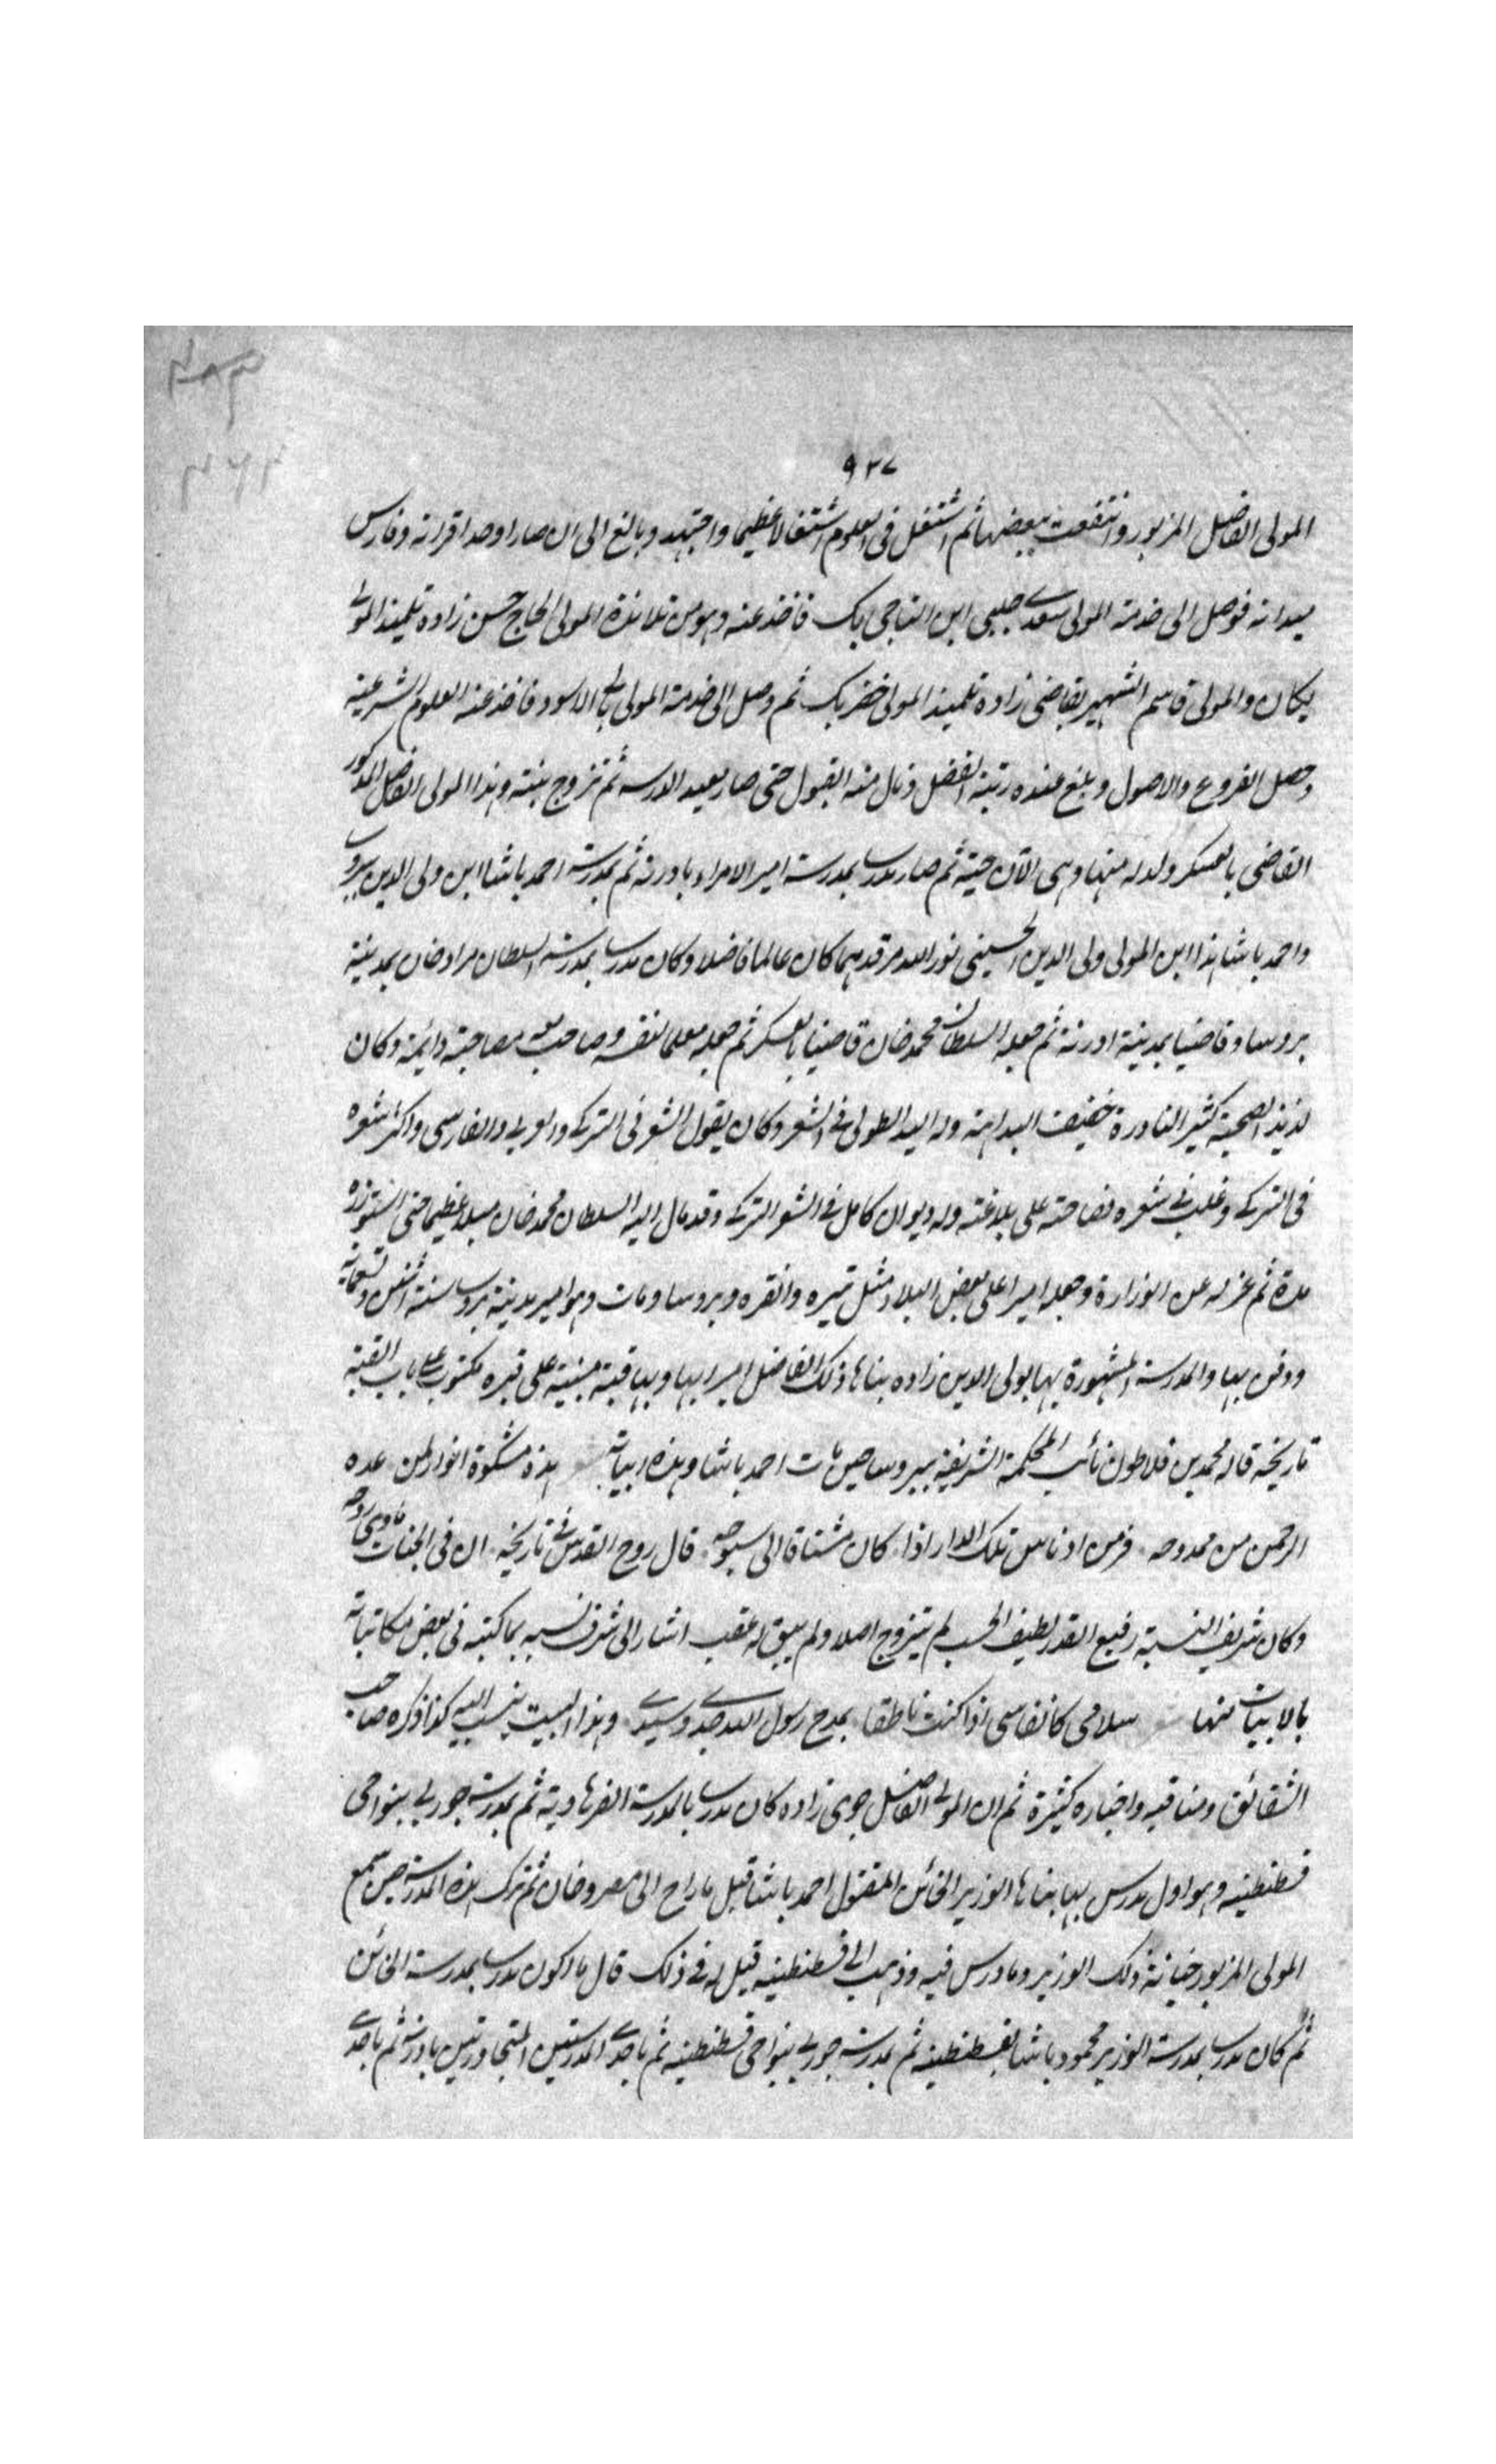 ٩٣٧
المولى الفاضل المزبور وانتفعت ببعضها ثم اشتغل فى العلوم اشتغالا عظيما واجتهد وبالغ الى ان صار اوحد اقرانه وفارس
ميدانه فوصل الى خدمة المولى سعدى جلبى ابن التاجى بك فاخذ عنه وهو من تلامذة المولى الحاج حسن زاده تلميذ المولى
يكان والمولى قاسم الشهير بقاضى زاده تلميذ المولى خضر بك ثم وصل الى خدمة المولى بالى الاسود فاخذ عنه العلوم الشرعية
وحصل الفروع والاصول وبلغ عنده رتبة الفضل ونال منه القبول حتى صار معيد الدرسه ثم تزوج بنته وهذا المولى الفاضل المذكور
القاضى بالعسكر ولد له منها وهى الآن حية ثم صار مدرسا بمدرسة امير الامراء بادرنه ثم بمدرسة احمد باشا ابن ولى الدين ببروسا
واحمد باشا هذا ابن المولى ولى الدين الحسينى نور الله مرقدهما كان عالما فاضلا وكان مدرسا بمدرسة السلطان مراد خان بمدينة
بروسا وقاضيا بمدينة ادرنة ثم جعله السلطان محمد خان قاضيا بالعسكر ثم جعله معلما لنفسه وصاحب معه مصاحبة دائمة وكان
لذيذ الصحبة كثير النادرة خفيف البداهة وله اليد الطولى فى الشعر وكان يقول الشعر فى التركى والعربى والفارسى واكثر شعره
فى التركى وغلب فى شعره فصاحته على بلاغته وله ديوان كامل فى الشعر التركى وقد مال اليه السلطان محمد خان ميلا عظيما حتى استوزره
مدة ثم عزله عن الوزارة وجعله اميرا على بعض البلاد مثل تيره وانقره وبروسا ومات وهو امير مدينة بروسا سنة اثنين وتسعمائة
ودفن بها والمدرسة المشهورة بها بولى الدين زاده بناها ذلك الفاضل اميرا بها وبها قبة مبنية على قبره مكتوب على باب القبة
تاريخه قاله محمد بن فلاطون نائب المحكمة الشريفة ببروسا حين مات احمد باشا وهذه ابياته هذه مشكوة انوار لمن عده
الرحمن من ممدوحه فر من ادناس تلك الدار اذا كان مشتاقا الى سبوحه قال روح القدس فى تاريخه ان فى الجنات ماوى روحه
وكان شريف النسبة رفيع القدر لطيف الحسب لم يتزوج اصلا ولم يبق له عقب اشار الى شرف نسبه بما كتبه فى بعض مكاتباته
بالابيات منها سلامى كانفاسى اذا كنت ناطقا بمدح رسول الله جدى وسيدى وهذا البيت ينسب اليه كذا ذكره صاحب
الشقائق ومناقبه واخباره كثيرة ثم ان المولى الفاضل جوى زاده كان مدرسا بالمدرسة الفرهادية ثم بمدرسة جورلى بنواحى
قسطنطينيه وهو اول مدرس بها بناها الوزير الخائن المقتول احمد باشا قبل ما راح الى مصر وخان ثم ترك هذه المدرسة حين سمع
المولى المزبور خيانة ذلك الوزير وما درس فيه وذهب الى قسطنطينيه قيل له فى ذلك قال ما اكون مدرسا بمدرسة الخائن
ثم كان مدرسا بمدرسة الوزير محمود باشا بقسطنطينيه ثم بمدرسة جورلى بنواحى قسطنطينيه ثم باحدى المدرستين المتجاورتين بادرنه ثم باحدى